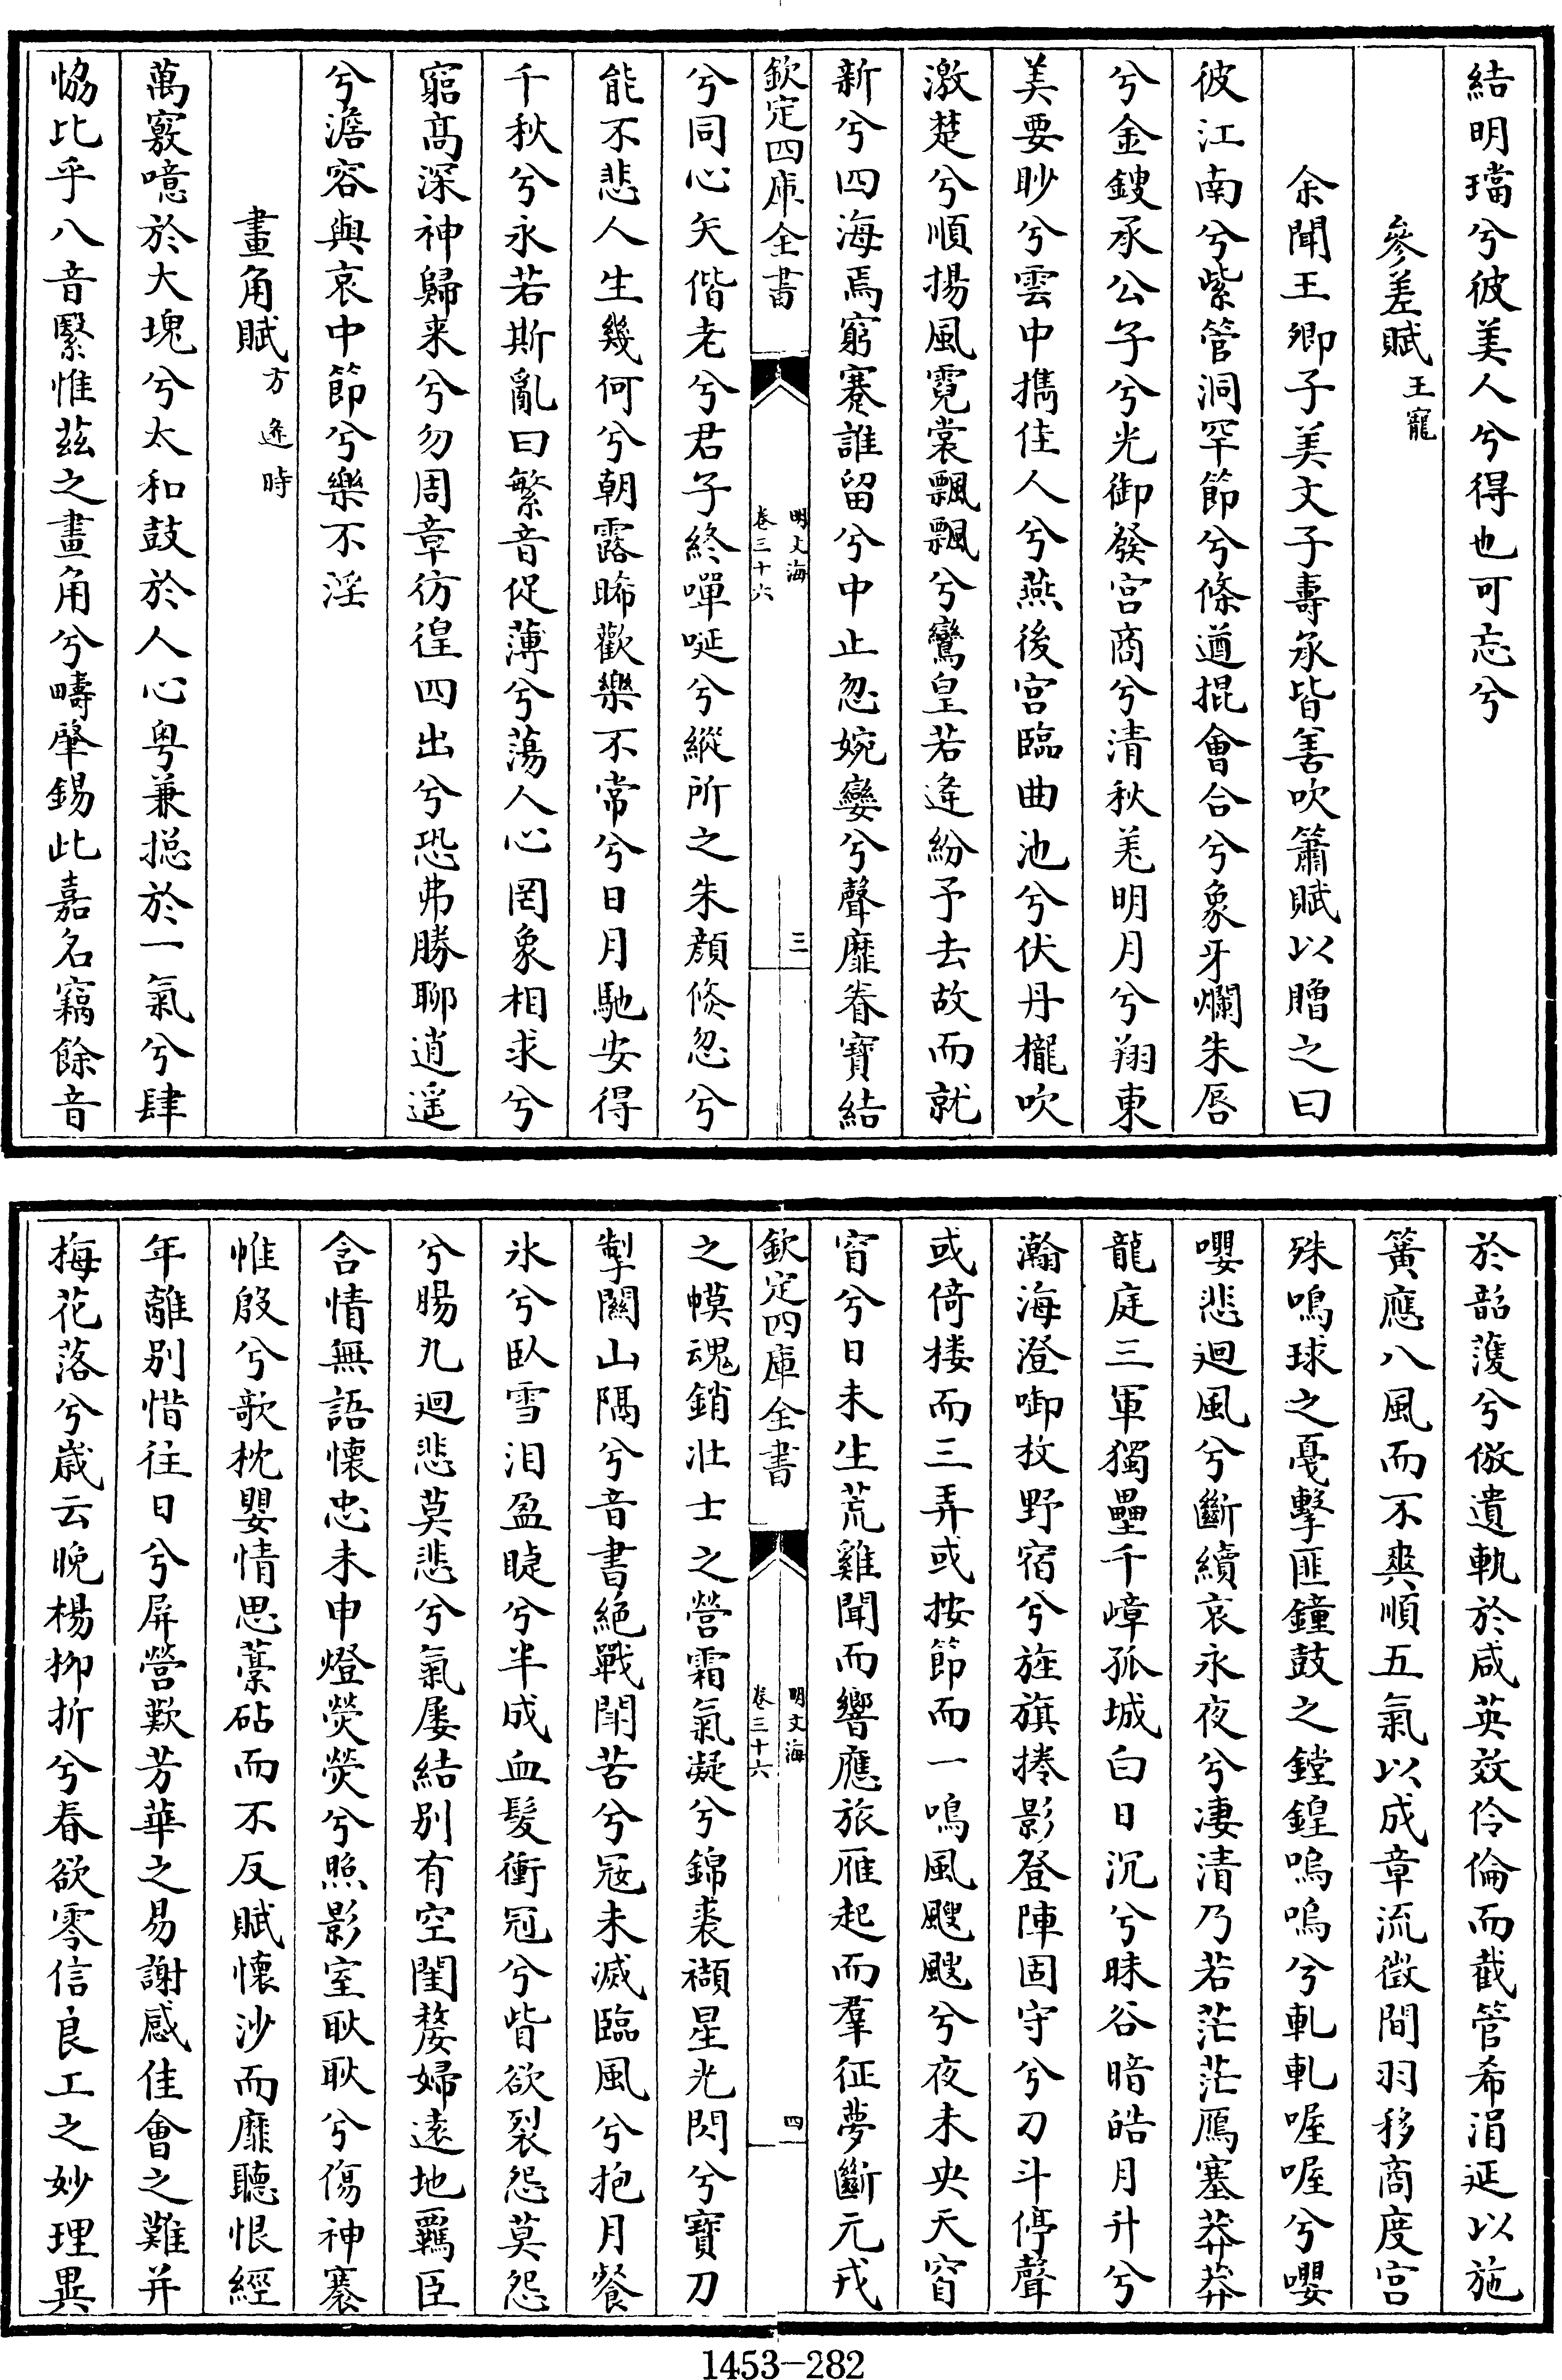 結明璫兮彼美人兮得也可忘兮
參差賦王寵
余聞王卿子美文子壽承皆善吹簫賦以贈之曰
彼江南兮紫管洞罕節兮條遒掍會合兮象牙爛朱唇
兮金鍐承公子兮光御發宫商兮清秋羌明月兮翔東
美要眇兮雲中携佳人兮燕後宫臨曲池兮伏丹櫳吹
激楚兮順揚風霓裳飄飄兮鸞皇若逄紛予去故而就
新兮四海焉窮蹇誰留兮中止忽婉孌兮聲靡眷寳結
欽定四庫全書
明文海
卷三十六
三
兮同心矢偕老兮君子終嘽咺兮縱所之朱顔倐忽兮
能不悲人生幾何兮朝露晞歡樂不常兮日月馳安得
千秋兮永若斯亂曰繁音促薄兮蕩人心罔象相求兮
窮髙深神歸来兮勿周章彷徨四出兮恐弗勝聊逍遥
兮澹容與哀中節兮樂不淫
畫角賦方逢時
萬竅噫於大塊兮太和鼓於人心粤兼摠於一氣兮肆
恊比乎八音繄惟兹之畫角兮疇肈錫此嘉名竊餘音
於韶頀兮倣遺軌於咸英效伶倫而截管希涓延以施
簧應八風而不爽順五氣以成章流徵間羽移商度宫
殊鳴球之戞擊匪鐘鼓之鏜鍠嗚嗚兮軋軋喔喔兮嚶
嚶悲迴風兮斷續哀永夜兮凄清乃若茫茫鴈塞莽莽
龍庭三軍獨壘千嶂孤城白日沉兮昧谷暗皓月升兮
瀚海澄啣枚野宿兮旌旗捲影登陣固守兮刀斗停聲
或倚楼而三弄或按節而一鳴風颼颼兮夜未央天窅
窅兮日未生荒雞聞而響應旅雁起而羣征夢斷元戎
欽定四庫全書
明文海
卷三十六
四
之幙魂銷壯士之營霜氣凝兮錦裘襭星光閃兮寳刀
掣關山隔兮音書絶戰鬭苦兮冦未滅臨風兮抱月餐
氷兮臥雪泪盈睫兮半成血髮衝冠兮眥欲裂怨莫怨
兮腸九迴悲莫悲兮氣屢結别有空閨嫠婦逺地羈臣
含情無語懐忠未申燈熒熒兮照影室耿耿兮傷神褰
帷殷兮歌枕嬰情思藁砧而不反賦懐沙而靡聽恨經
年離别惜往日兮屏營歎芳華之易謝感佳會之難并
梅花落兮嵗云晚楊柳折兮春欲零信良工之妙理異
1453—282